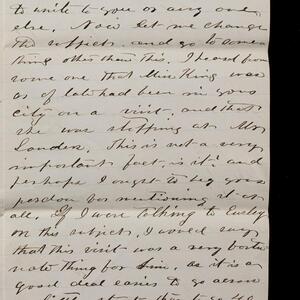 to write to you or any one
else. Now let me change
the subject, and go to some
thing other than this. I heard from
some one that Miss King was
as of late had been in your
city on a visit, and that
she was stopping at Mr
Landers. This is not a very
important fact, is it? and
perhaps I ought to beg your
pardon for mentioning it at
all. If I were talking to
on this subject, I would say
that this visit was a very fortu
nate thing for him, as it is a
good deal easier to go across